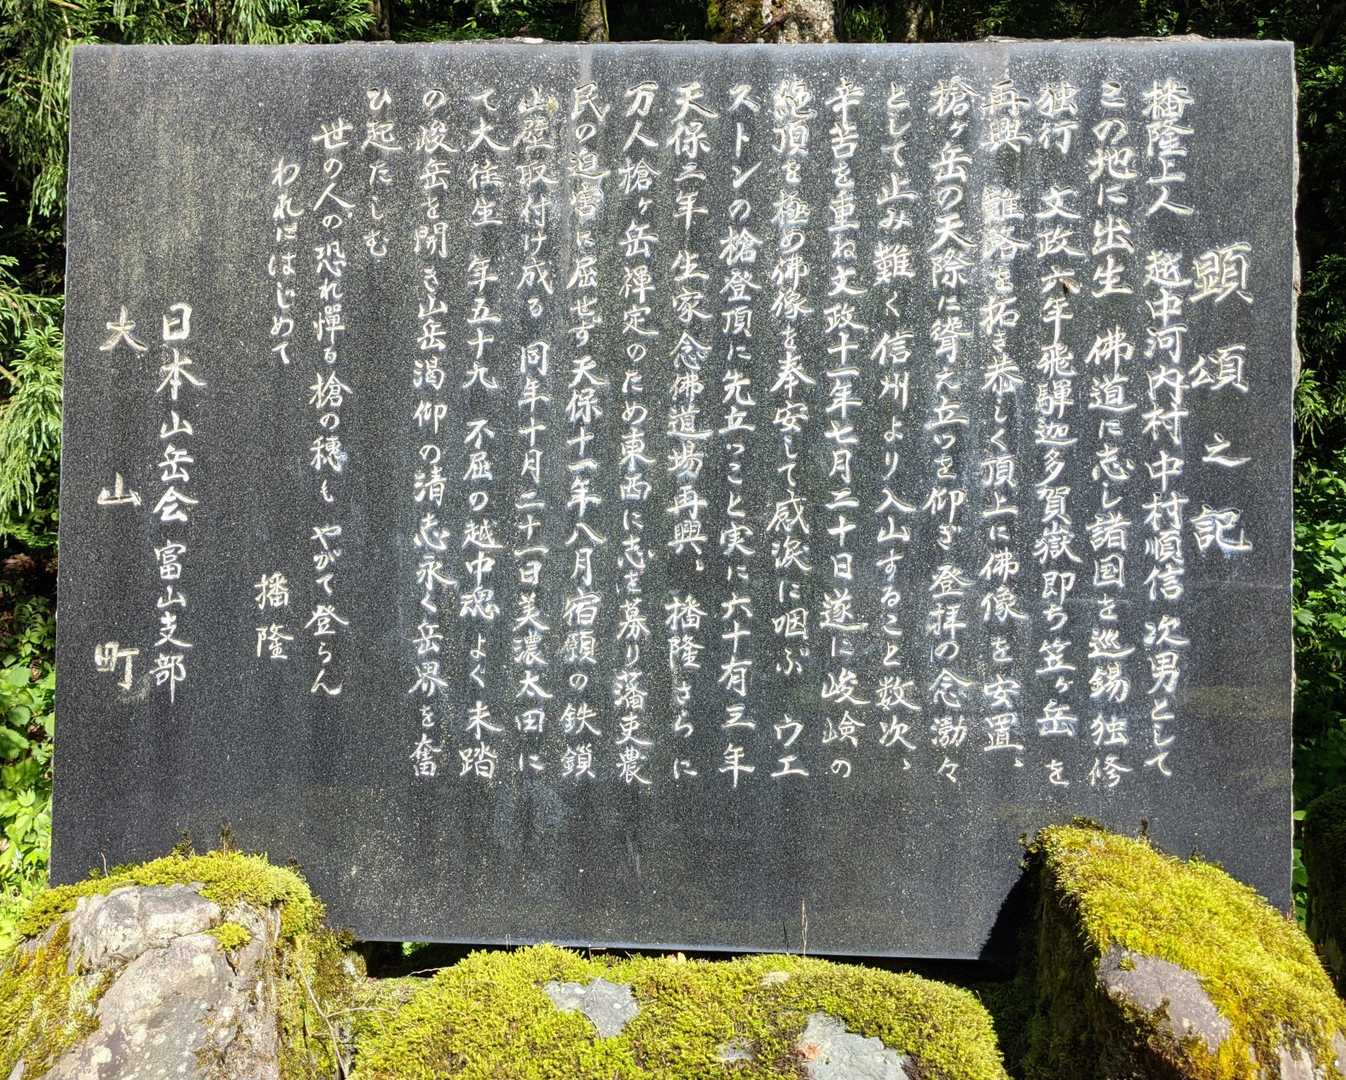 顕頌之記
播隆上人 越中河内村中村順信次男として
この地に出生 佛道に志し諸国を巡錫独修
独行 文政六年飛騨迦多賀嶽即ち笠ヶ岳を
再興 難路を拓き恭しく頂上に佛像を安置、
槍ヶ岳の天際に聳え立つを仰ぎ登拝の念渤々
として止み難く信州より入山すること数次、
辛苦を重ね文政十一年七月二十日遂に峻嶮の
絶頂を極め佛像を奉安して感涙に咽ぶ ウエ
ストンの槍登頂に先立つこと実に六十有三年
天保三年 生家念佛道場再興、播隆さらに
万人槍ヶ岳禅定のため東西に志を募り藩吏農
民の迫害に屈せず天保十一年八月宿願の鉄鎖
山壁取付け成る 同年十月二十一日美濃太田に
て大往生 年五十九 不屈の越中魂 よく未踏
の峻岳を開き山岳渇仰の清志永く岳界を奮
ひ起たしむ
世の人の恐れ憚る槍の穂も やがて登らん
われにはじめて
播隆
日本山岳会富山支部
大山町